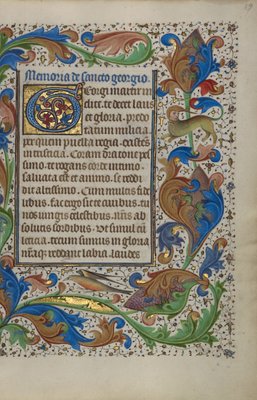 Memoria de sancto georgio.
Georgi martir in
clite. te decet laus
et gloria. predo
tatum milicia
per quem puella regia. existens
in tristicia. Coram dracone pes
simo. te rogans corde intimo.
salvata est et animo. se redd
dic altissimo. Cum multis fide
libus. fac ergo sic te civibus. tu
nos iungis celestibus. nr̄is ab
solutis sordibus. Ut simul cū
leticia. tecum simus in gloria
nr̄aq; reddāt labia. laudes